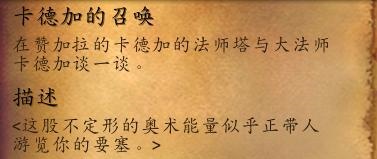 卡德加的召唤
在赞加拉的卡德加的法师塔与大法师
卡德加谈一谈。
描述
<这股不定形的奥术能量似乎正带人
游览你的要塞。>